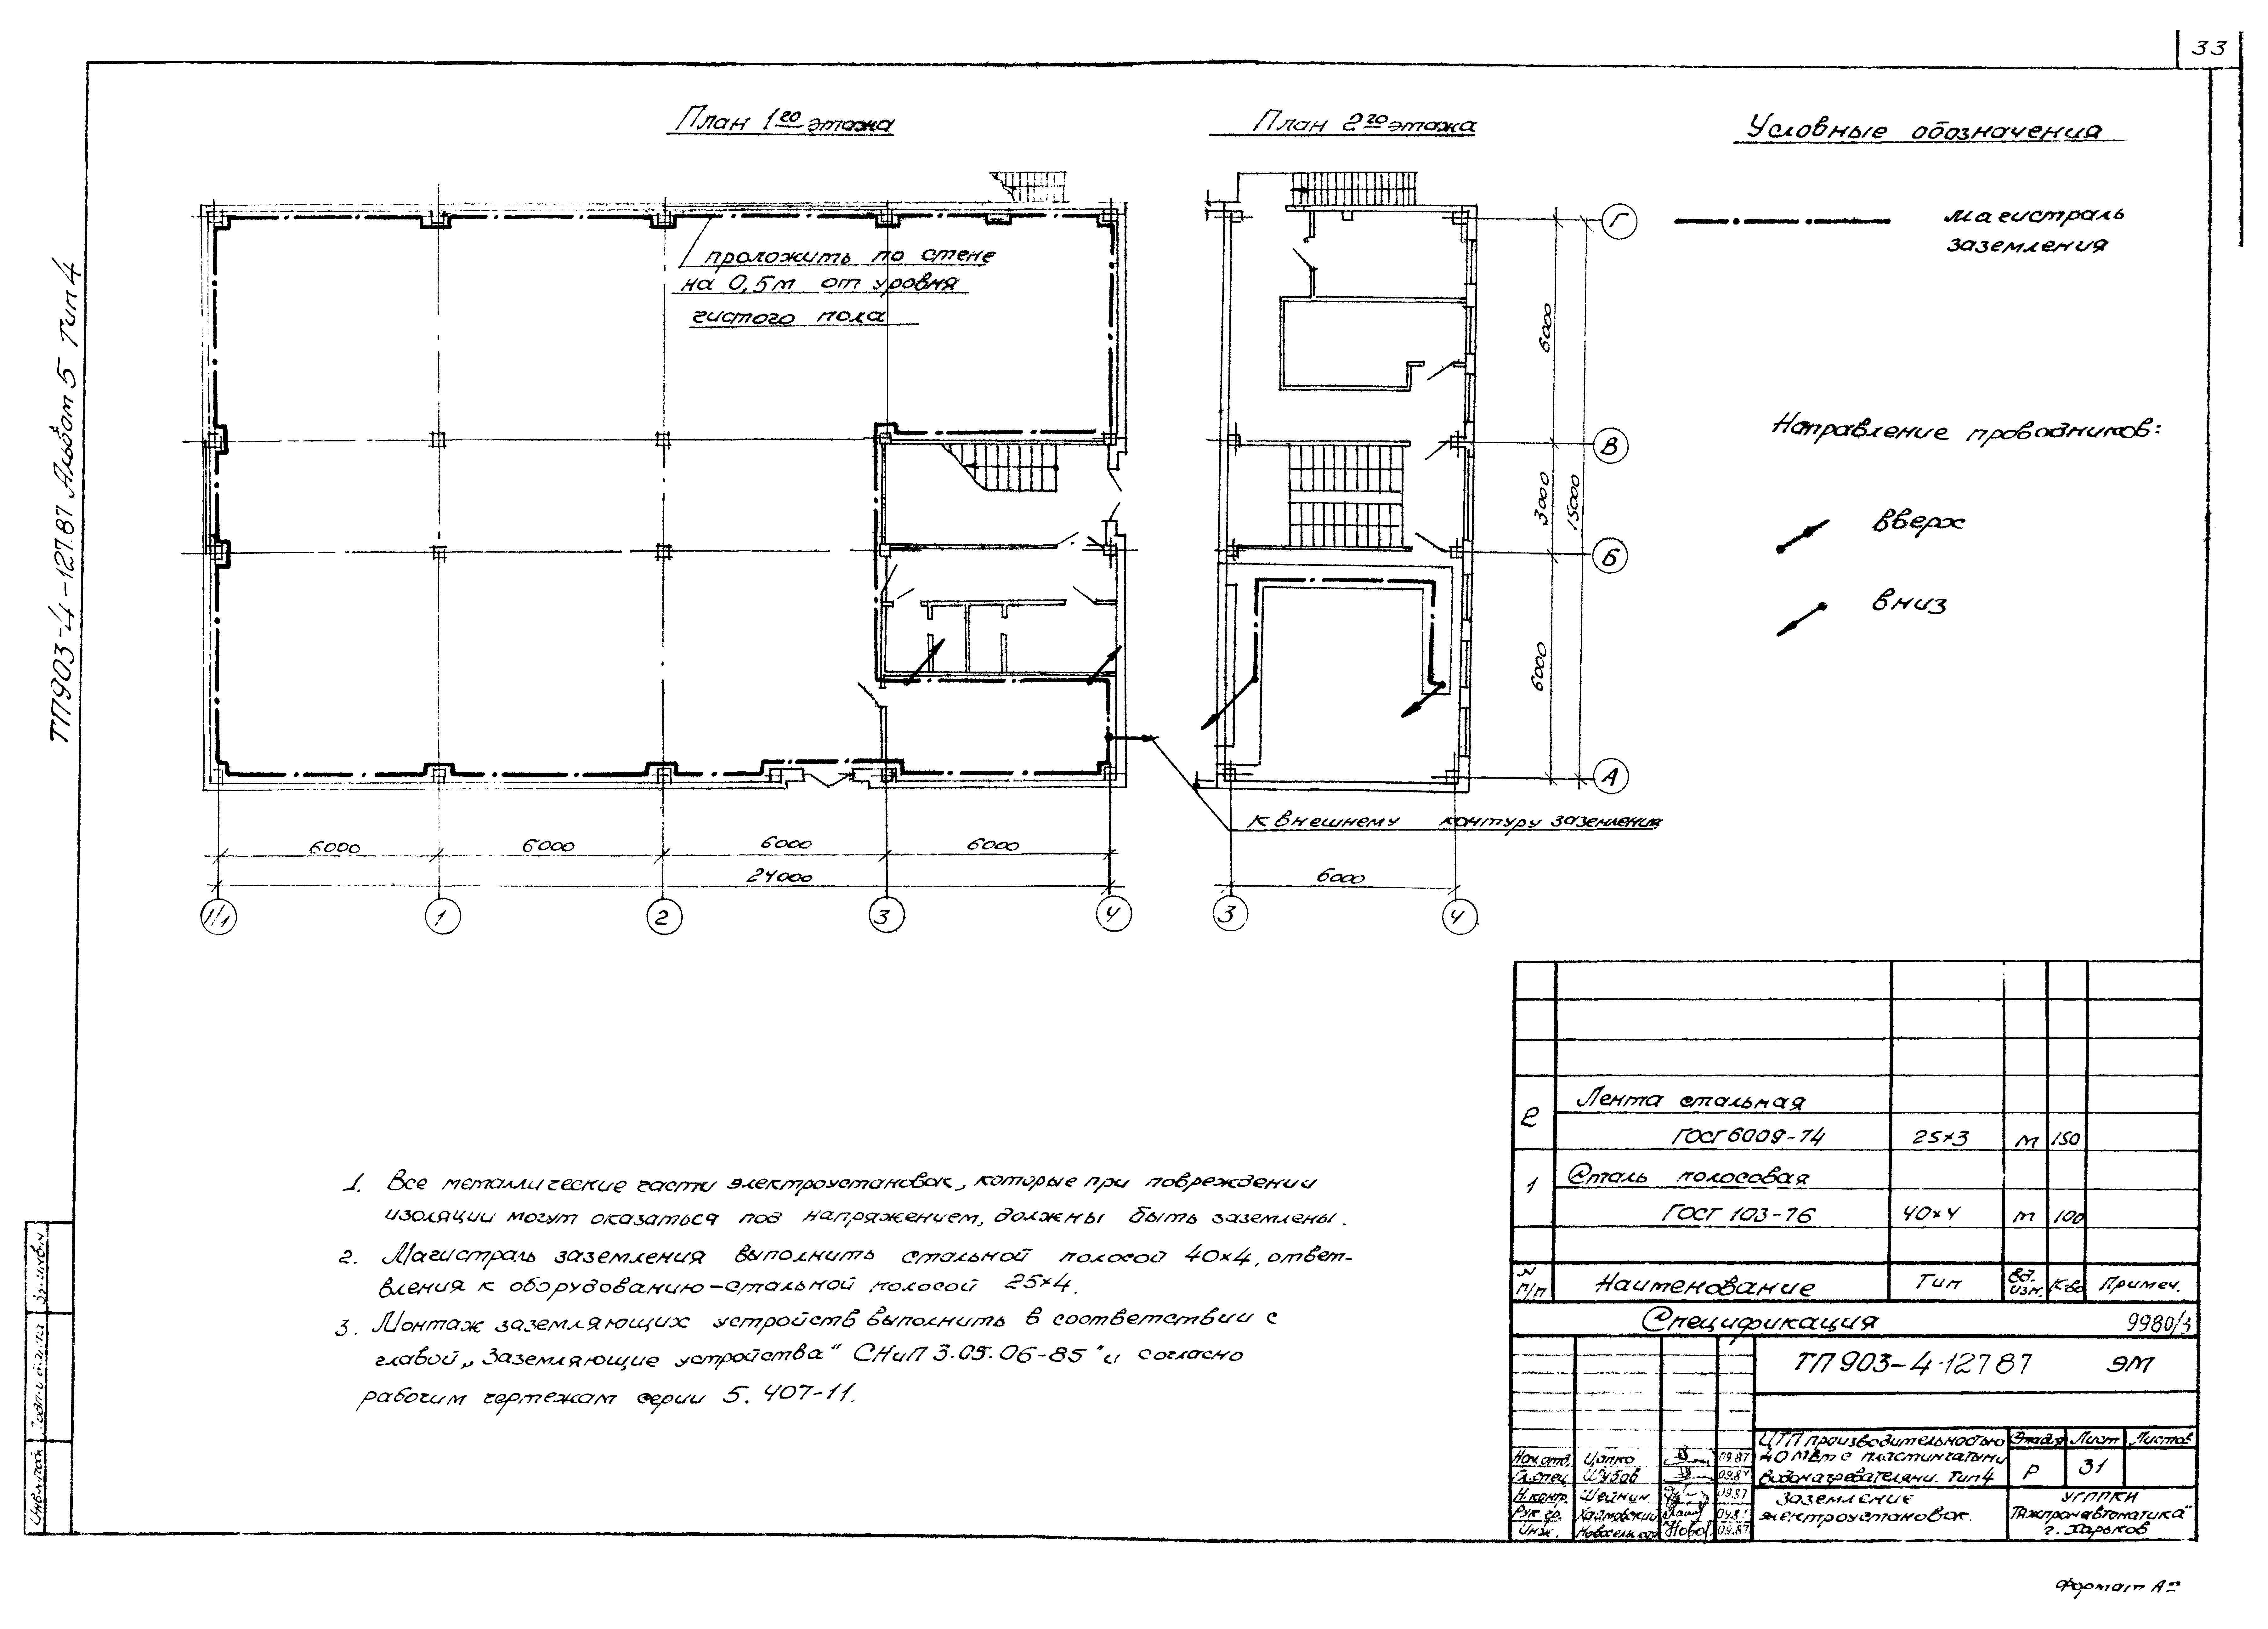 33
План 1го этажа
План 2го этажа
Условные обозначения
магистраль
заземления
проложить по стене
на 0,5м от уровня
чистого пола
Направление проводников:
вверх
вниз
ТП903-4-127.87 Альбом 5 Тип 4
Г
В
Б
А
6000
3000
15000
6000
к внешнему контуру заземления
6000
6000
6000
6000
24000
6000
1/1
1
2
3
4
3
4
1. Все металлические части электроустановок, которые при повреждении
изоляции могут оказаться под напряжением, должны быть заземлены.
2. Магистраль заземления выполнить стальной полосой 40×4, ответ-
вления к оборудованию-стальной полосой 25×4.
3. Монтаж заземляющих устройств выполнить в соответствии с
главой „Заземляющие устройства" СНиП 3.05.06-85 "и согласно
рабочим чертежам серии 5.407-11.
2 Лента стальная
ГОСТ 6009-74 25×3 м 150
1 Сталь полосовая
ГОСТ 103-76 40×4 м 100
N п/п Наименование Тип Ед. изм. К-во Примеч.
Спецификация 9980/3
ТП 903-4-127 87 ЭМ
ЦТП производительностью
40 МВт с пластинчатыми
водонагревателями. Тип 4
Стадия Лист Листов
Р 31
Заземление
электроустановок.
УГППКИ
Тяжпромавтоматика"
г. Харьков
Нач.отд. Цапко 09.87
Гл.спец Шубов 09.87
Н.контр. Шейнин 09.87
Рук гр. Хаймовский 09.87
Инж. 09.87
Взам.инв.N
Подпись и дата
Инв.N подл
Формат А